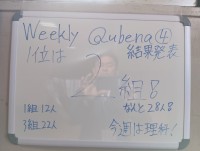 Weekly Qubena④
1位は 結果発表
2組!!
1組12人 なんと28人!!
3組22人 今週は理科!